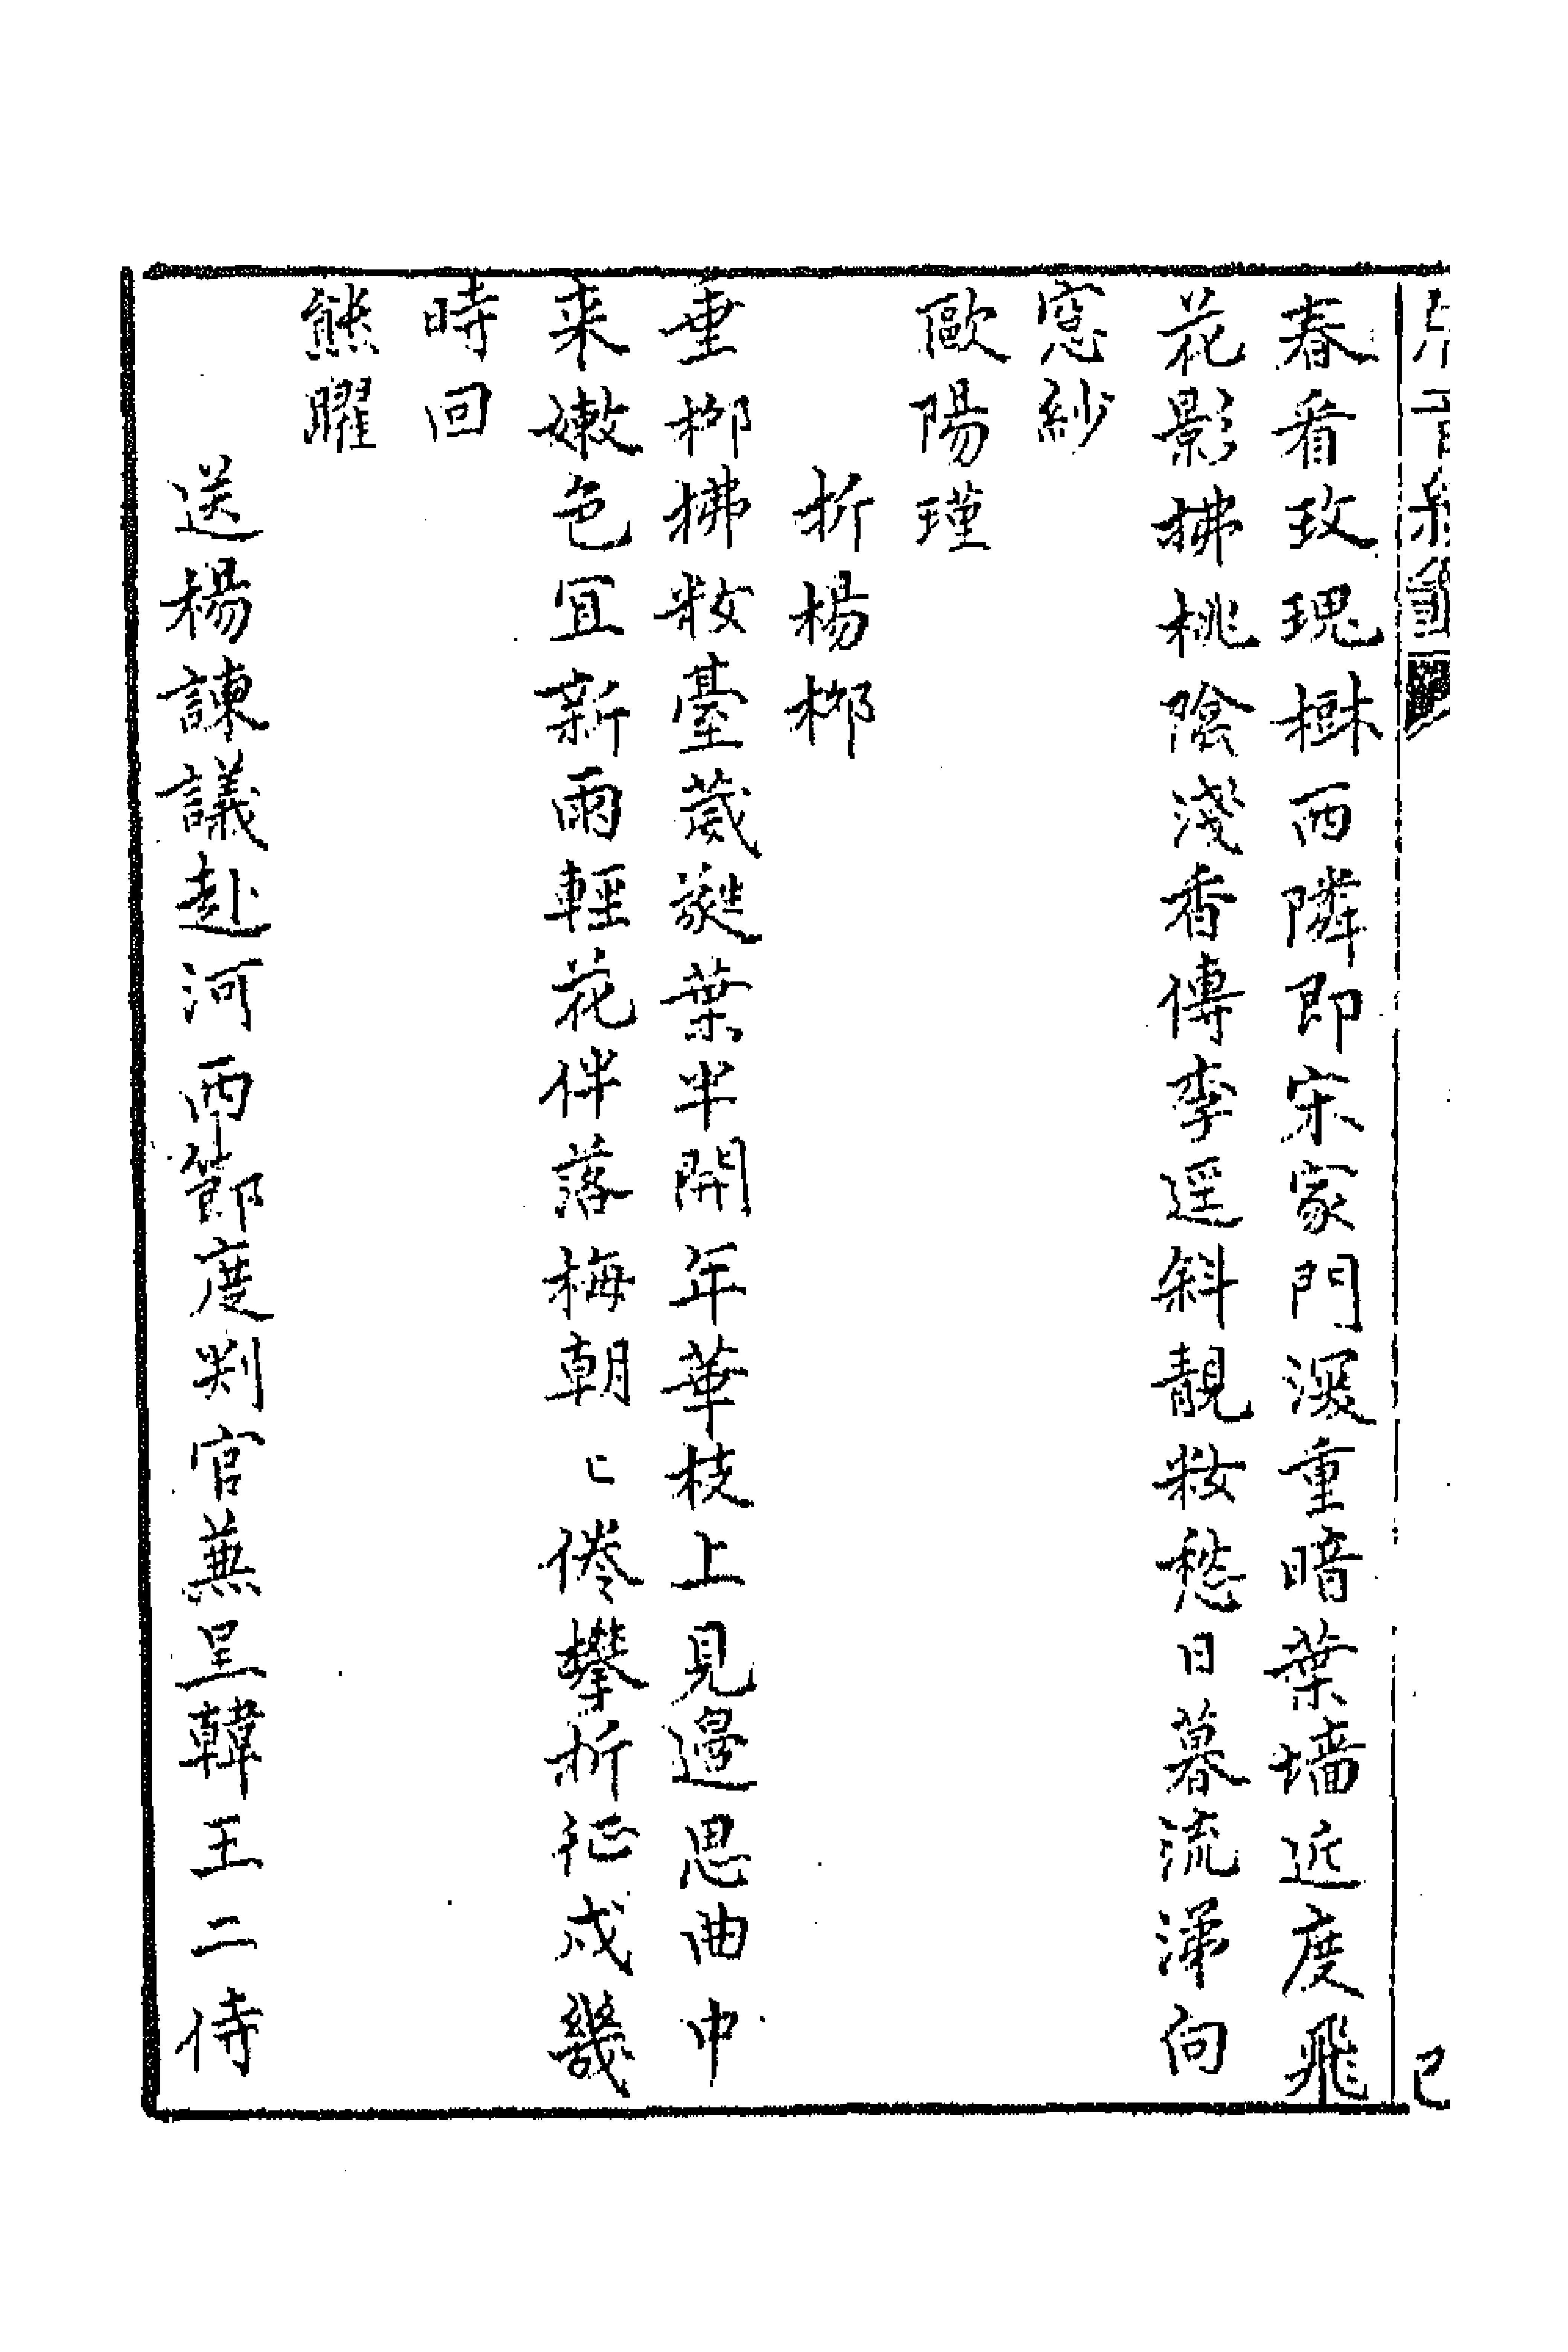 春看玫瑰樹西隣即宋家門深重暗葉墻近度飛
花影拂桃陰淺香傳李逕斜靚粧愁日暮流涕向
窓紗
歐陽瑾
折楊柳
垂柳拂粧臺葳蕤葉半開年華枝上見邊思曲中
来嫩色冝新雨輕花伴落梅朝〻倦攀折征戍幾
時回
熊曜
送楊諫議赴河西節度判官蕪呈韓王二侍